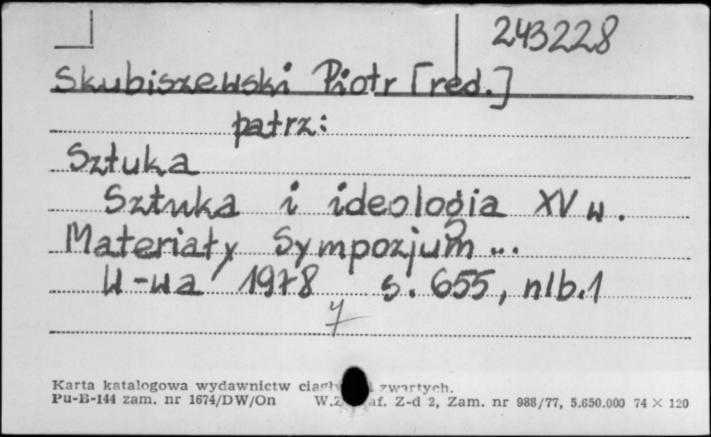 243228
Skubiszewski Piotr [red.]
patrz:
Sztuka
Sztuka i ideologia XV w.
Materiały Sympozjum ...
W-wa 1978 s. 655, nlb.1
Karta katalogowa wydawnictw zwartych.
Pu-B-144 zam. nr 1674/DW/On Z-d 2, Zam. nr 988/77, 5.650.000 74 × 120